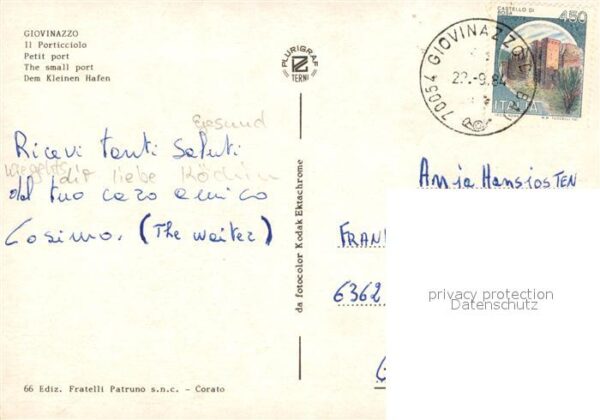 GIOVINAZZO
Il Porticciolo
Petit port
The small port
Dem Kleinen Hafen
PLURIGRAF
TERNI
CASTELLO DI
450
ITALIA
70054 GIOVINAZZO
22.-9.84
Gesund
Ricevi tanti saluti
dir liebe Köchin
dal tuo caro amico
Cosimo. (The waiter)
da fotocolor Kodak Ektachrome
Anja
FRAN
6362
privacy protection
Datenschutz
66 Ediz. Fratelli Patruno s.n.c. - Corato